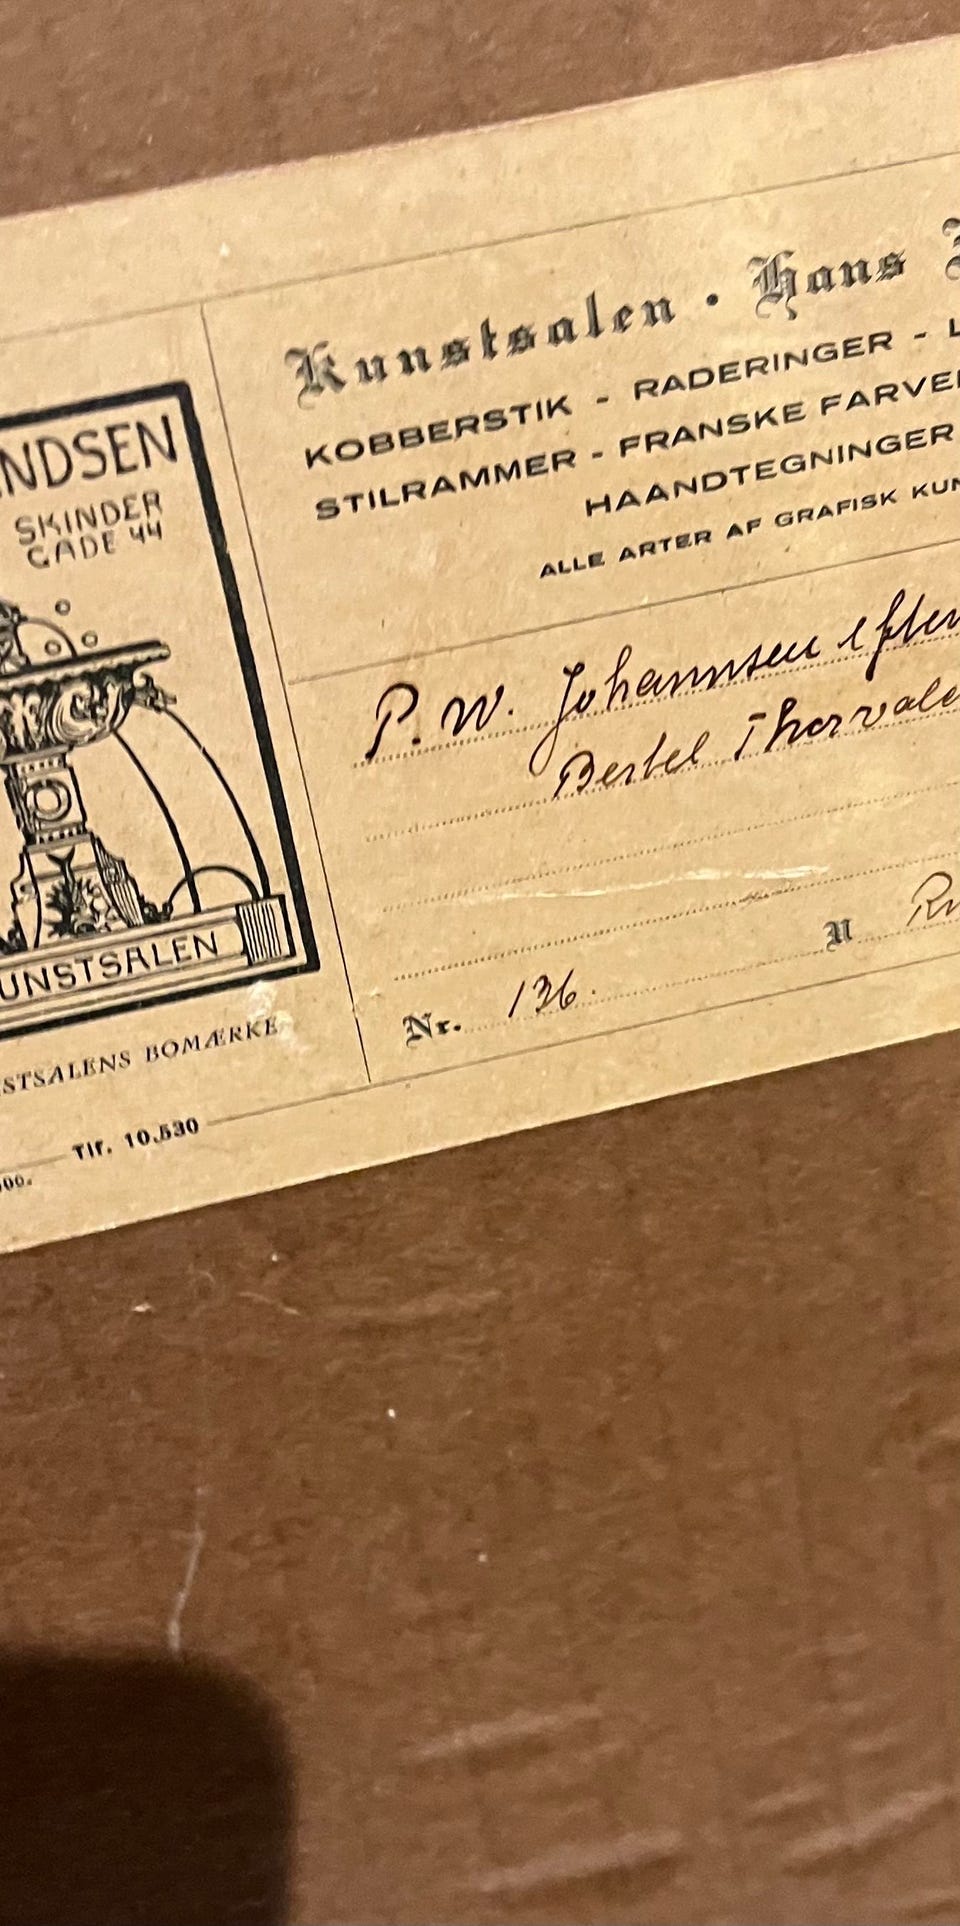 NDSEN
SKINDER
GADE 44
UNSTSALEN
STSALENS BOMÆRKE
Tlf. 10.530
Kunstsalen · Hans
KOBBERSTIK - RADERINGER - L
STILRAMMER - FRANSKE FARVE
HAANDTEGNINGER
ALLE ARTER AF GRAFISK KUN
P. W. Johannsen efter
Bertel Thorvald
Nr. 136.